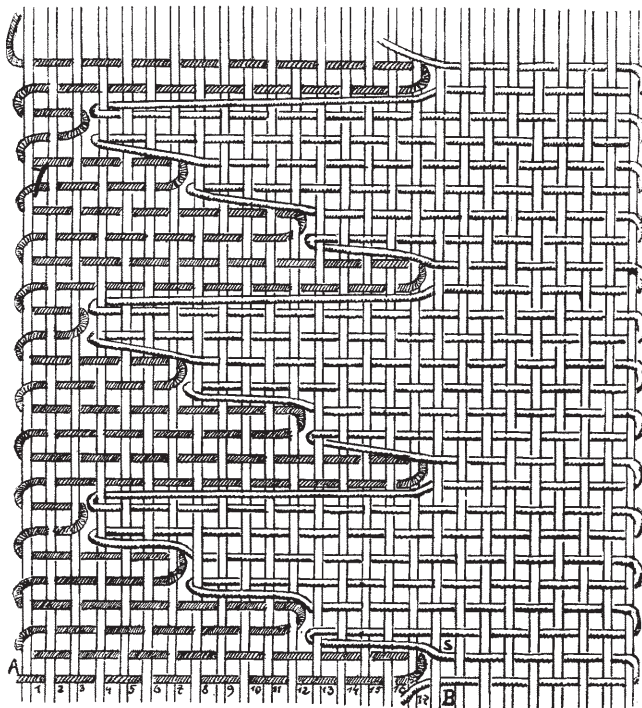 S
A
1 2 3 4 5 6 7 8 9 10 11 12 13 14 15 16 17 B